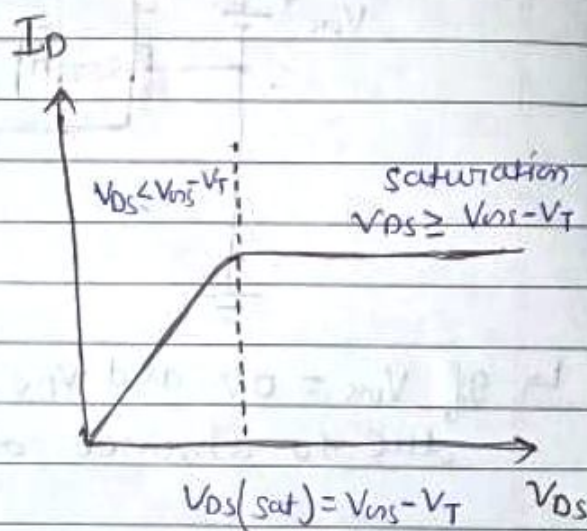 I_D
V_DS < V_GS - V_T
saturation
V_DS ≥ V_GS - V_T
V_DS(sat) = V_GS - V_T
V_DS